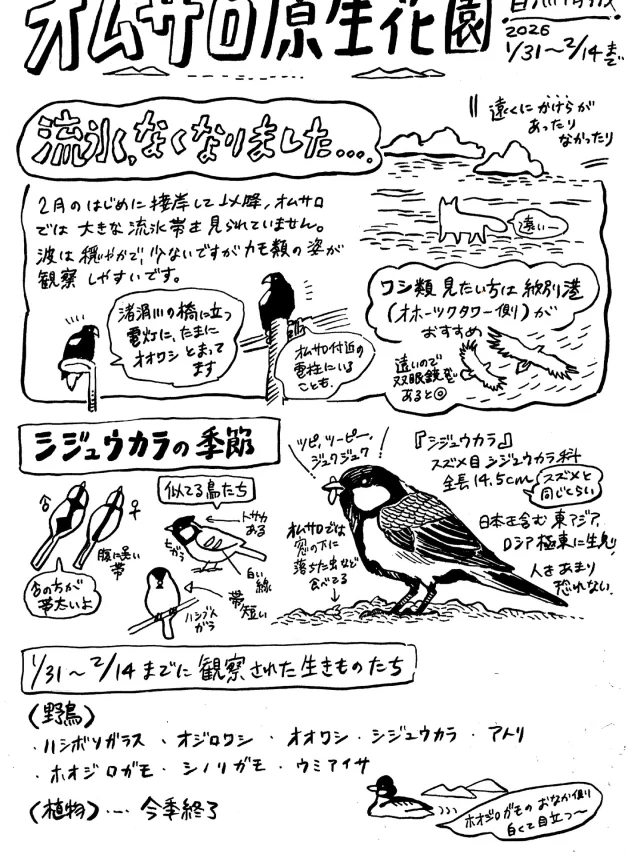 オムサロ原生花園
2026
1/31〜2/14まで
流氷、なくなりました...。
遠くにかけらが
あったり
なかったり
2月のはじめに接岸して以降、オムサロ
では大きな流氷帯は見られていません。
波は穏やかで少ないですがカモ類の姿が
観察しやすいです。
遠いー
渚滑川の橋に立つ
電灯に、たまに
オオワシとまって
ます
オムサロ付近の
電柱にいる
ことも。
ワシ類見たい方は紋別港
(オホーツクタワー側)が
おすすめ
遠いので
双眼鏡が
あると◎
シジュウカラの季節
♂
♀
腹に黒い
帯
♂の方が
帯太いよ
似てる鳥たち
トサカ
ある
ヒガラ
白い
線
帯
短い
ハシブト
ガラ
ツピ、ツーピー、
ジュクジュク
オムサロでは
窓の下に
落ちた虫など
食べてる
『シジュウカラ』
スズメ目シジュウカラ科
全長14.5cm
スズメと
同じくらい
日本を含む東アジア、
ロシア極東に生息
人をあまり
恐れない。
1/31〜2/14までに観察された生きものたち
(野鳥)
・ハシボソガラス・オジロワシ・オオワシ・シジュウカラ・アトリ
・ホオジロガモ・シノリガモ・ウミアイサ
(植物)…今季終了
ホオジロガモのおなか側
白くて目立つ〜